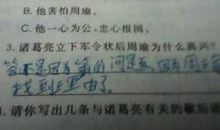 B. 他害怕周瑜。
C. 他一心为公,忠心报国。
3. 诸葛亮立下军令状后周瑜为什么高兴?
答不是因为
因为周瑜
找到理由了。
3. 请你写出几条与诸葛亮有关的歇后语